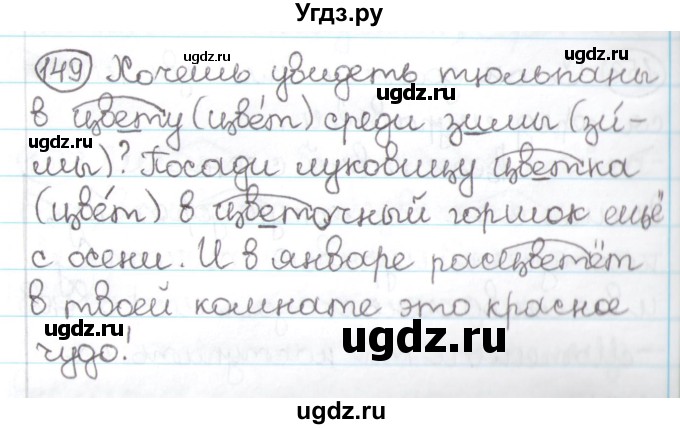 Угдз.ру
149 Хочешь увидеть тюльпаны
ugdz.ru
ugdz.ru
в цвету (цве́т) среди зимы (зи́-
мы)? Посади луковицу цветка
ugdz.ru
ugdz.ru
(цве́т) в цветочный горшок ещё
с осени. И в январе расцветёт
ugdz.ru
в твоей комнате это красное
ugdz.ru
ugdz.ru
чудо!
ugdz.ru